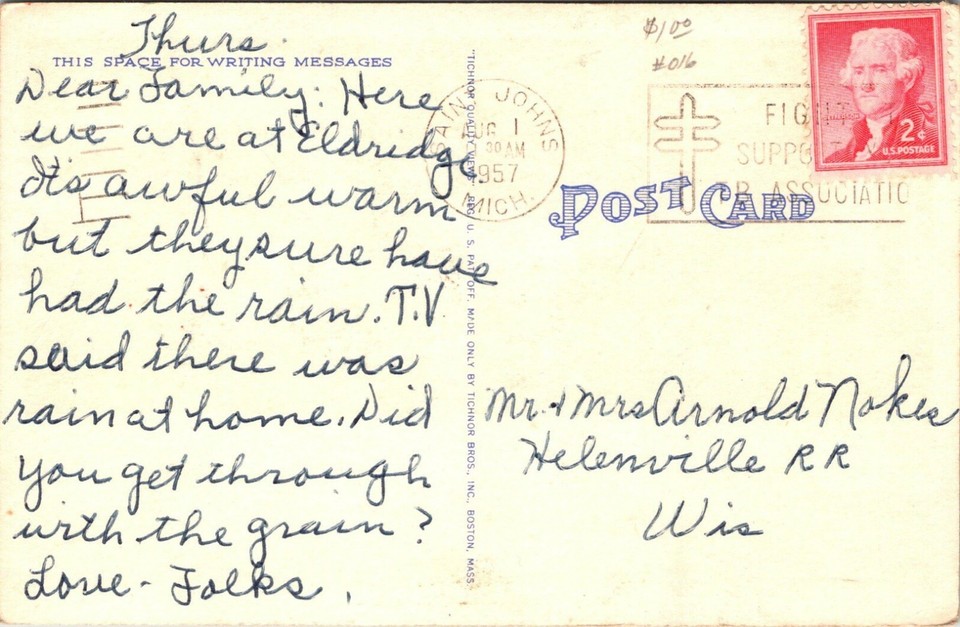 Thurs.
THIS SPACE FOR WRITING MESSAGES
Dear Family: Here
we are at Eldridge
Its awful warm
but they sure have
had the rain. T.V
said there was
rain at home. Did
you get through
with the grain?
Love - Folks.
"TICHNOR QUALITY VIEWS," REG. U. S. PAT. OFF. MADE ONLY BY TICHNOR BROS., INC., BOSTON, MASS.
SAINT JOHNS
AUG 1
30 AM
1957
MICH.
$1.00
#016
FIGHT
SUPPO
ASSOCIATIO
2¢
U.S. POSTAGE
POST CARD
Mr. & Mrs Arnold Nokes
Helenville RR
Wis